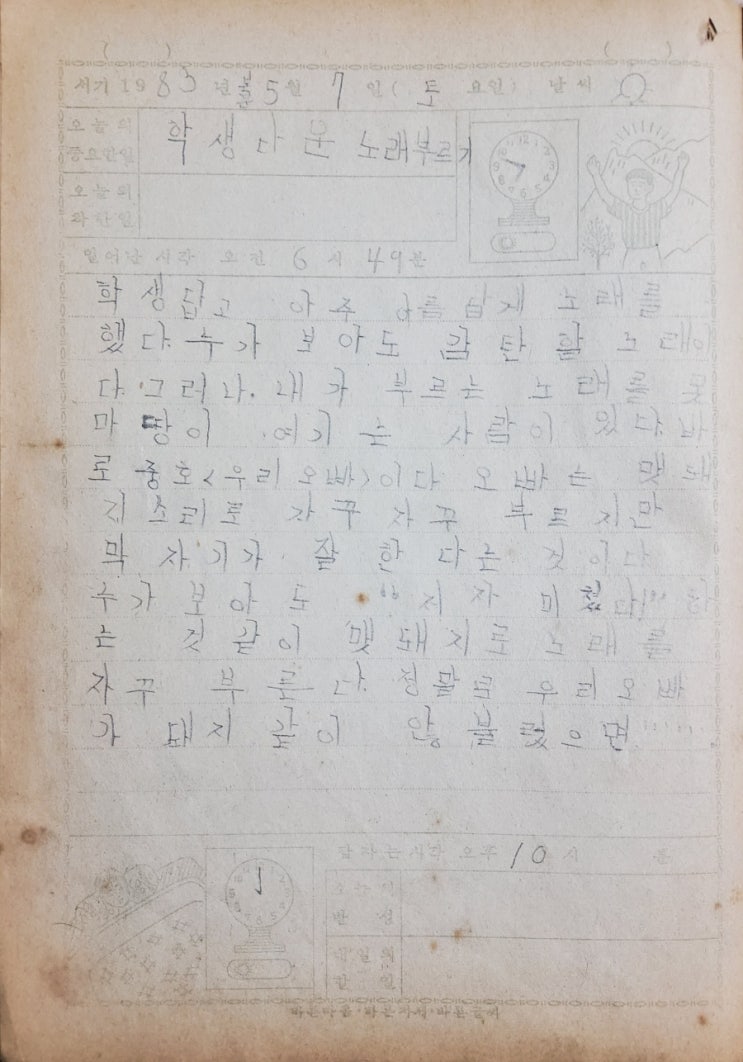 ( ) ( )
서기 19 83 년 5 월 7 일 ( 토 요일 ) 날씨
오늘의
중요한일
학생다운 노래부르기
오늘의
착한일
일어난 시각 오전 6 시 49 분
학생답고 아주 아름답게 노래를
했다. 누가 보아도 감탄할 노래이
다. 그러나. 내가 부르는 노래를 못
마땅이 여기는 사람이 있다. 바
로 중호<우리 오빠>이다 오빠는 맷돼
지소리로 자꾸 자꾸 부르지만
막 자기가 잘 한다는 것이다
누가 보아도 "저자 미쳤다!" 하
는 것 같이 맷돼지로 노래를
자꾸 부른다. 정말로 우리 오빠
가 돼지 같이 않불렀으면 ......
잠자는시각 오후 10 시 분
오늘의
반성
내일의
할 일
바른마음·바른자세·바른글씨